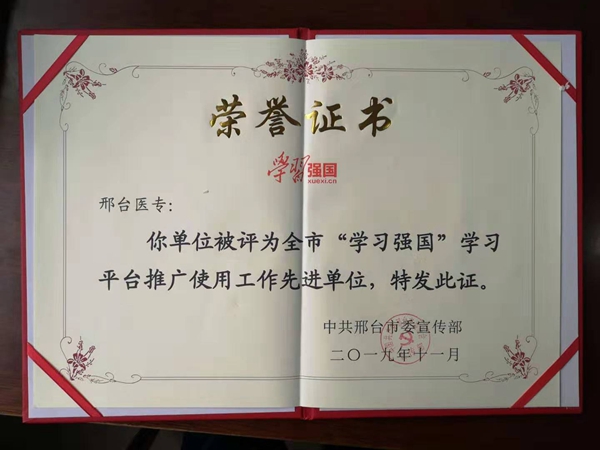 荣誉证书
学習强国
xuexi.cn
邢台医专：
你单位被评为全市“学习强国”学习
平台推广使用工作先进单位，特发此证。
中共邢台市委宣传部
二〇一九年十一月